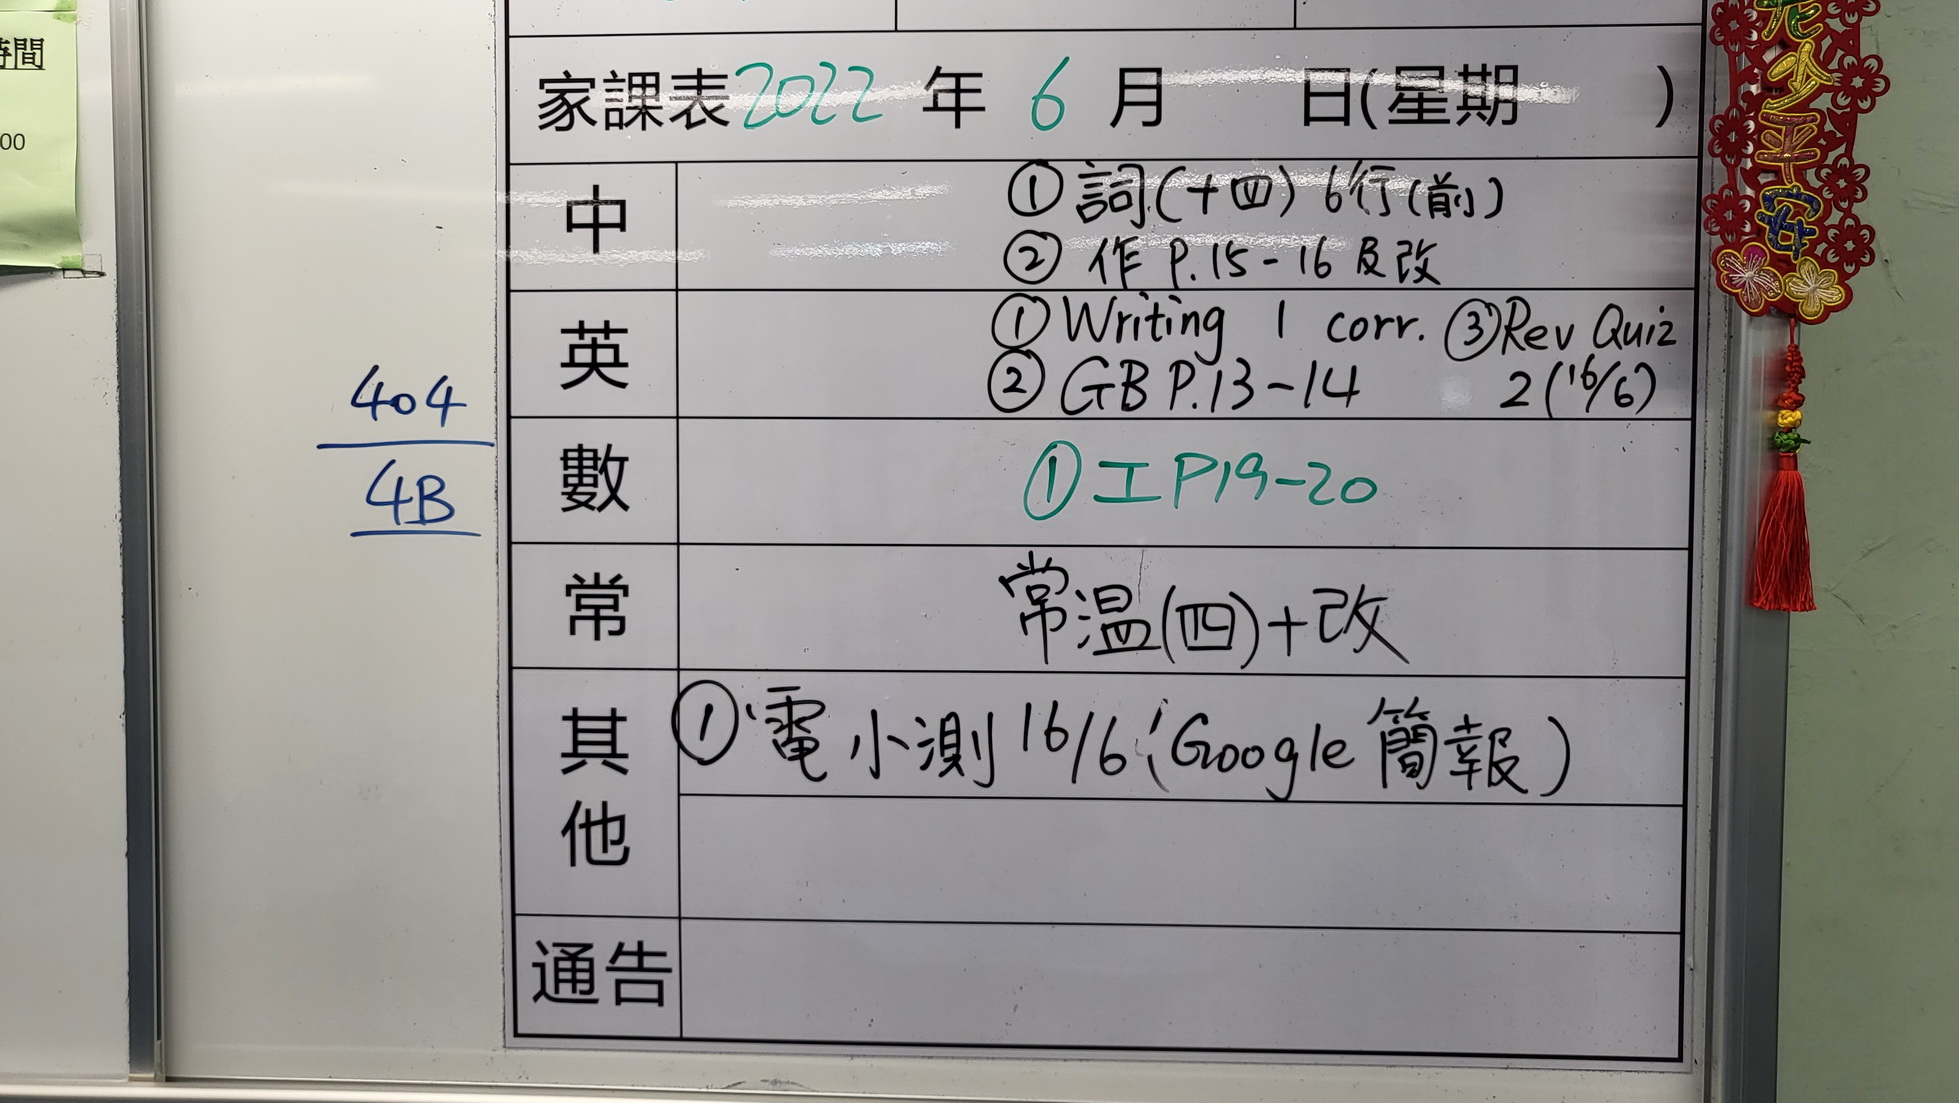 時間
00
家課表2022年 6 月 日(星期 )
中
① 詞(十四) 6行(前)
② 作 P.15-16 及改
英
① Writing 1 corr. ③ Rev Quiz
② GB P.13-14 2 (16/6)
404
4B
數
① 工 P19-20
常
常温(四)+改
其他
① 電 小測 16/6 (Google 簡報)
通告
平安